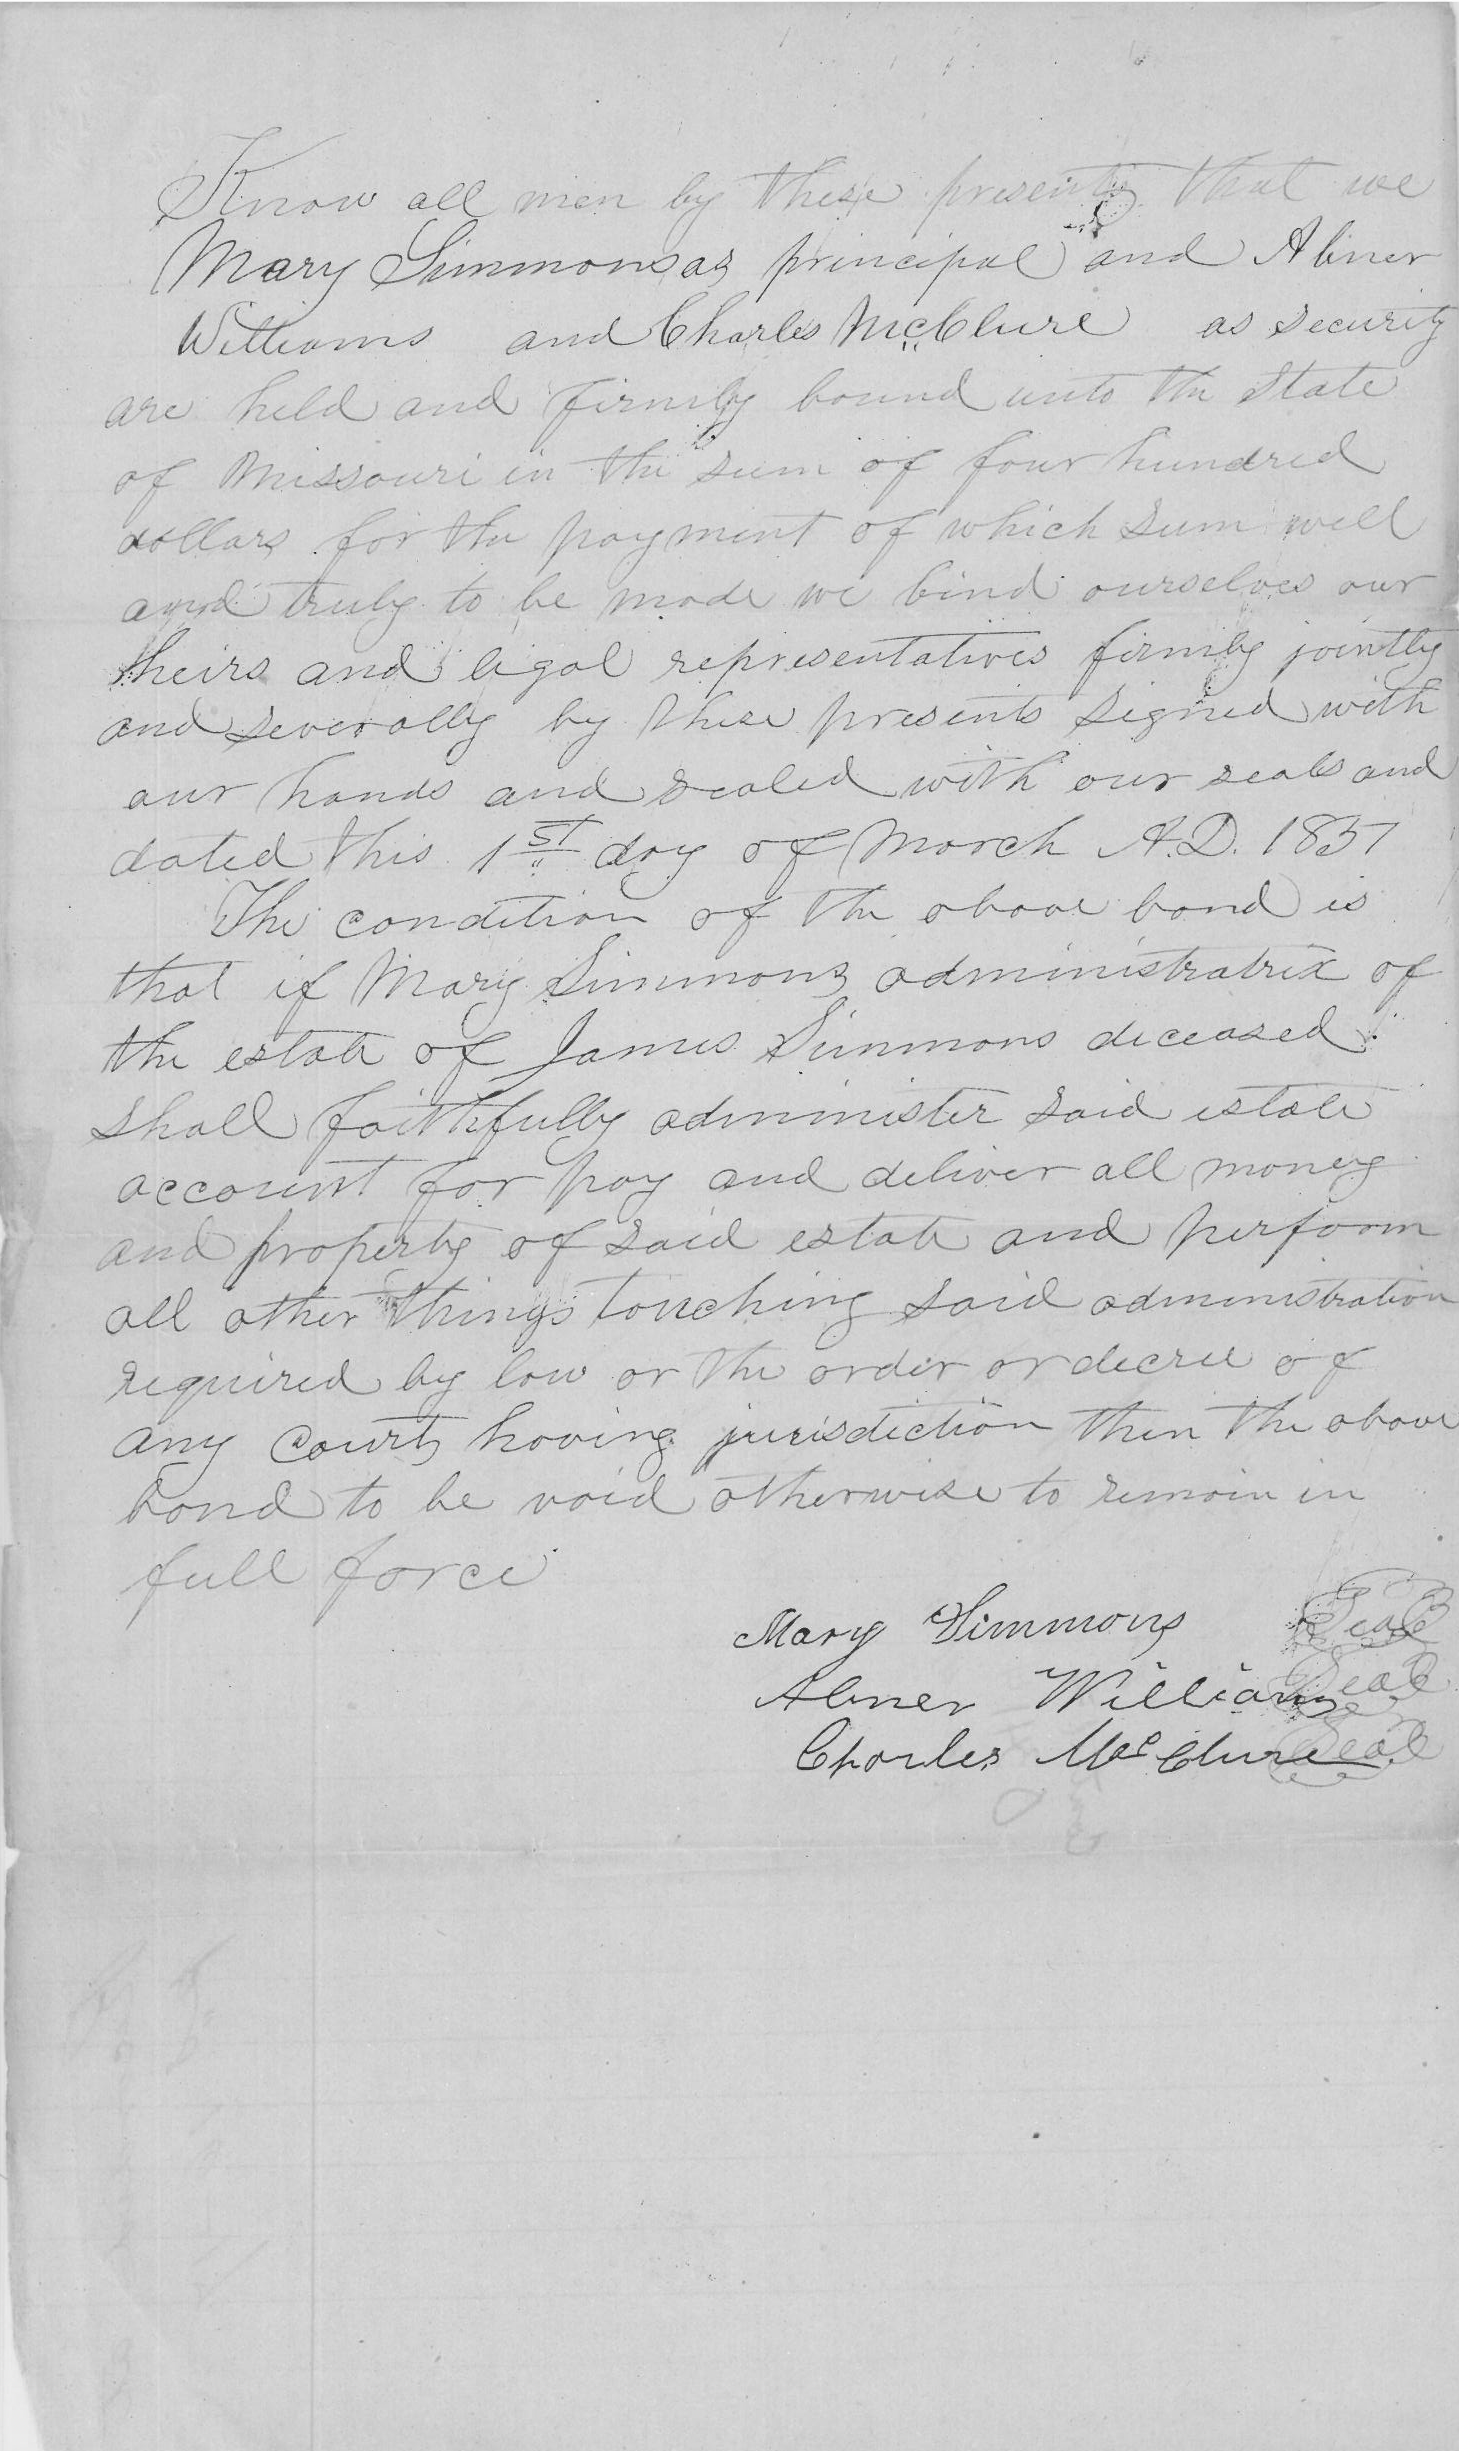 Know all men by these presents that we
Mary Simmons as principal and Abner
Williams and Charles McClure as security
are held and firmly bound unto the State
of Missouri in the sum of four hundred
dollars for the payment of which sum well
and truly to be made we bind ourselves our
heirs and legal representatives firmly jointly
and severally by these presents signed with
our hands and sealed with our seals and
dated this 1st day of March A.D. 1857
The condition of the above bond is
that if Mary Simmons administratrix of
the estate of James Simmons deceased
shall faithfully administer said estate
account for pay and deliver all money
and property of said estate and perform
all other things touching said administration
required by law or the order or decree of
any Courts having jurisdiction then the above
bond to be void otherwise to remain in
full force
Mary Simmons Seal
Abner Williams Seal
Charles McClure Seal